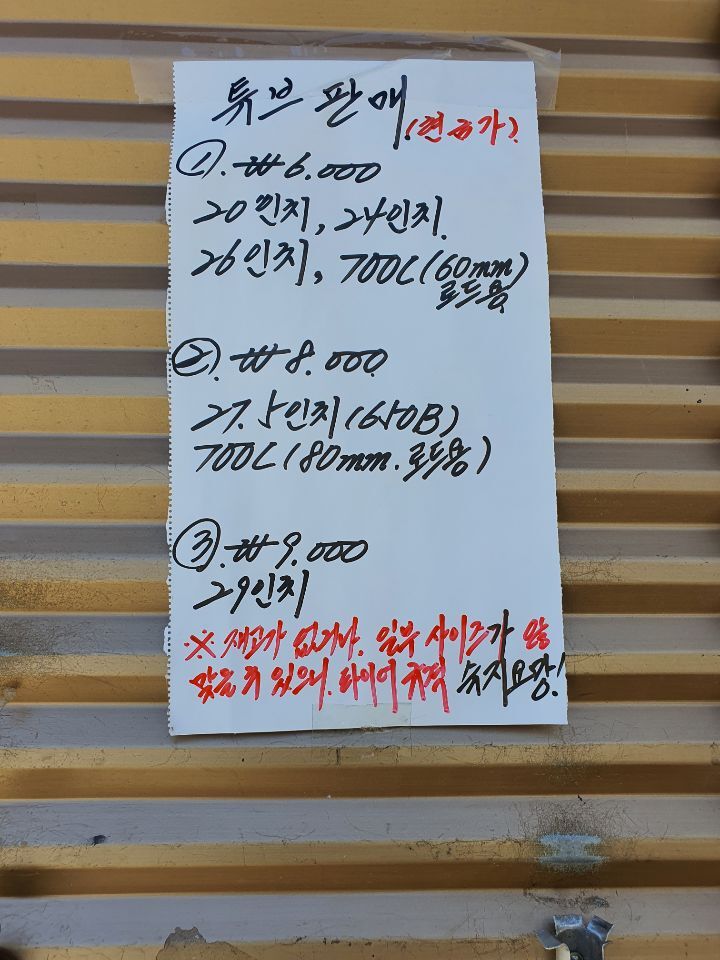 튜브 판매
(현금가).
①. ₩6.000
20인치, 24인치.
26인치, 700C(60mm)
로드용
②. ₩8.000
27.5인치(650B)
700C(80mm.로드용)
③. ₩9.000
29인치
※ 재고가 없거나. 일부 사이즈가 안
맞을 수 있으니. 타이어 규격 숙지요망!